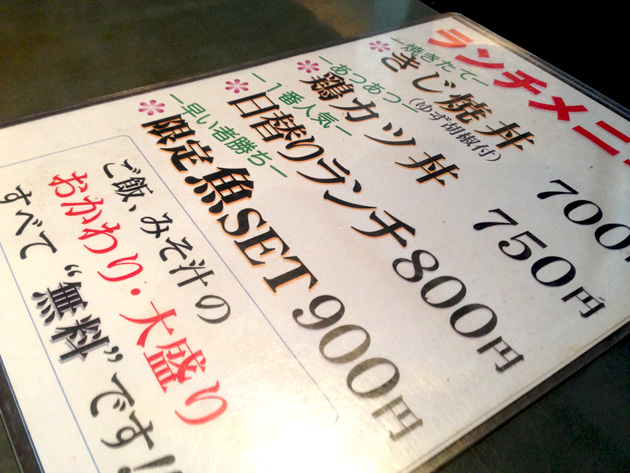 ランチメニ
－焼きたて－
きじ焼丼 700
(ゆず胡椒付)
－あつあつ－
鶏カツ丼 750円
－1番人気－
日替りランチ 800円
－早い者勝ち－
限定魚SET 900円
ご飯、みそ汁の
おかわり・大盛り
すべて“無料”です!!